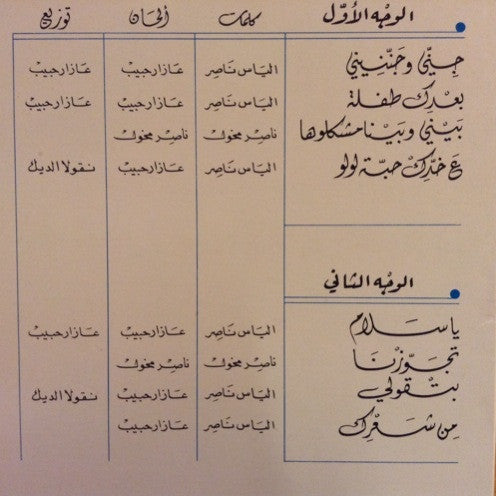 الوجه الأوّل كلمات ألحان توزيع
جنّي وجَنّنيني الياس ناصر عازار حبيب عازار حبيب
بعدِك طفلة الياس ناصر عازار حبيب عازار حبيب
بَيْني وبَيْنا مشكلوها ناصر مخول ناصر مخول
عَ خدِّكْ حبّة لولو الياس ناصر عازار حبيب نقولا الديك
الوجه الثاني
يا سلام الياس ناصر عازار حبيب عازار حبيب
تجوّزْنا ناصر مخول ناصر مخول
بتْقولي الياس ناصر عازار حبيب نقولا الديك
مِن سَفرِك الياس ناصر عازار حبيب